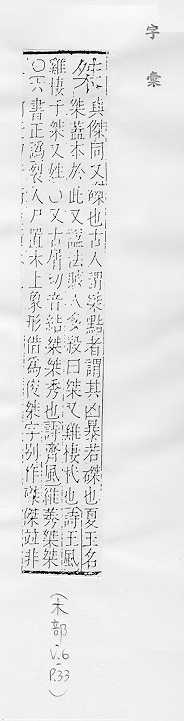 字彙
桀 與傑同又磔也古人謂桀黠者謂其凶暴若磔也夏王名
桀蓋本於此又諡法賊人多殺曰桀又雞棲杙也詩王風
雞棲于桀又姓○又古屑切音結桀桀秀也詩齊風維莠桀桀
○六書正譌裂人尸置木上象形借爲俊桀字別作磔傑竝非
(木部
V.6
P.33)